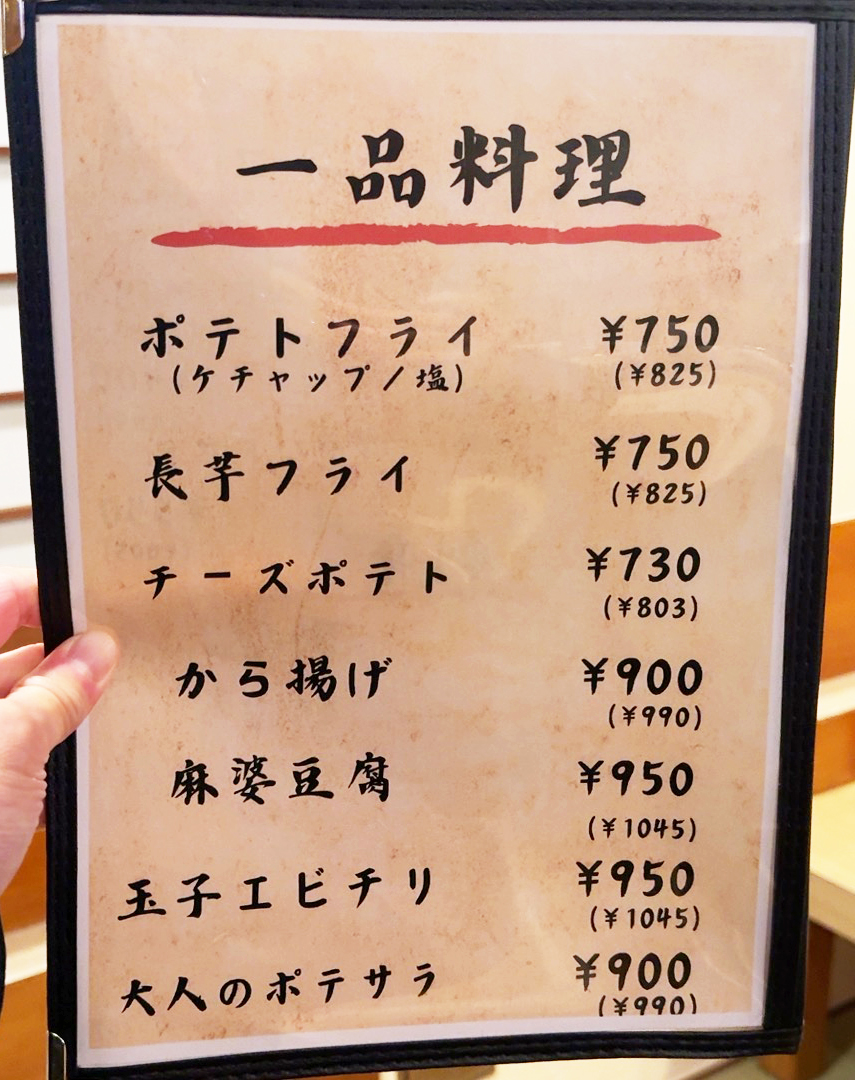 一品料理
ポテトフライ ¥750
(ケチャップ/塩) (¥825)
長芋フライ ¥750
(¥825)
チーズポテト ¥730
(¥803)
から揚げ ¥900
(¥990)
麻婆豆腐 ¥950
(¥1045)
玉子エビチリ ¥950
(¥1045)
大人のポテサラ ¥900
(¥990)